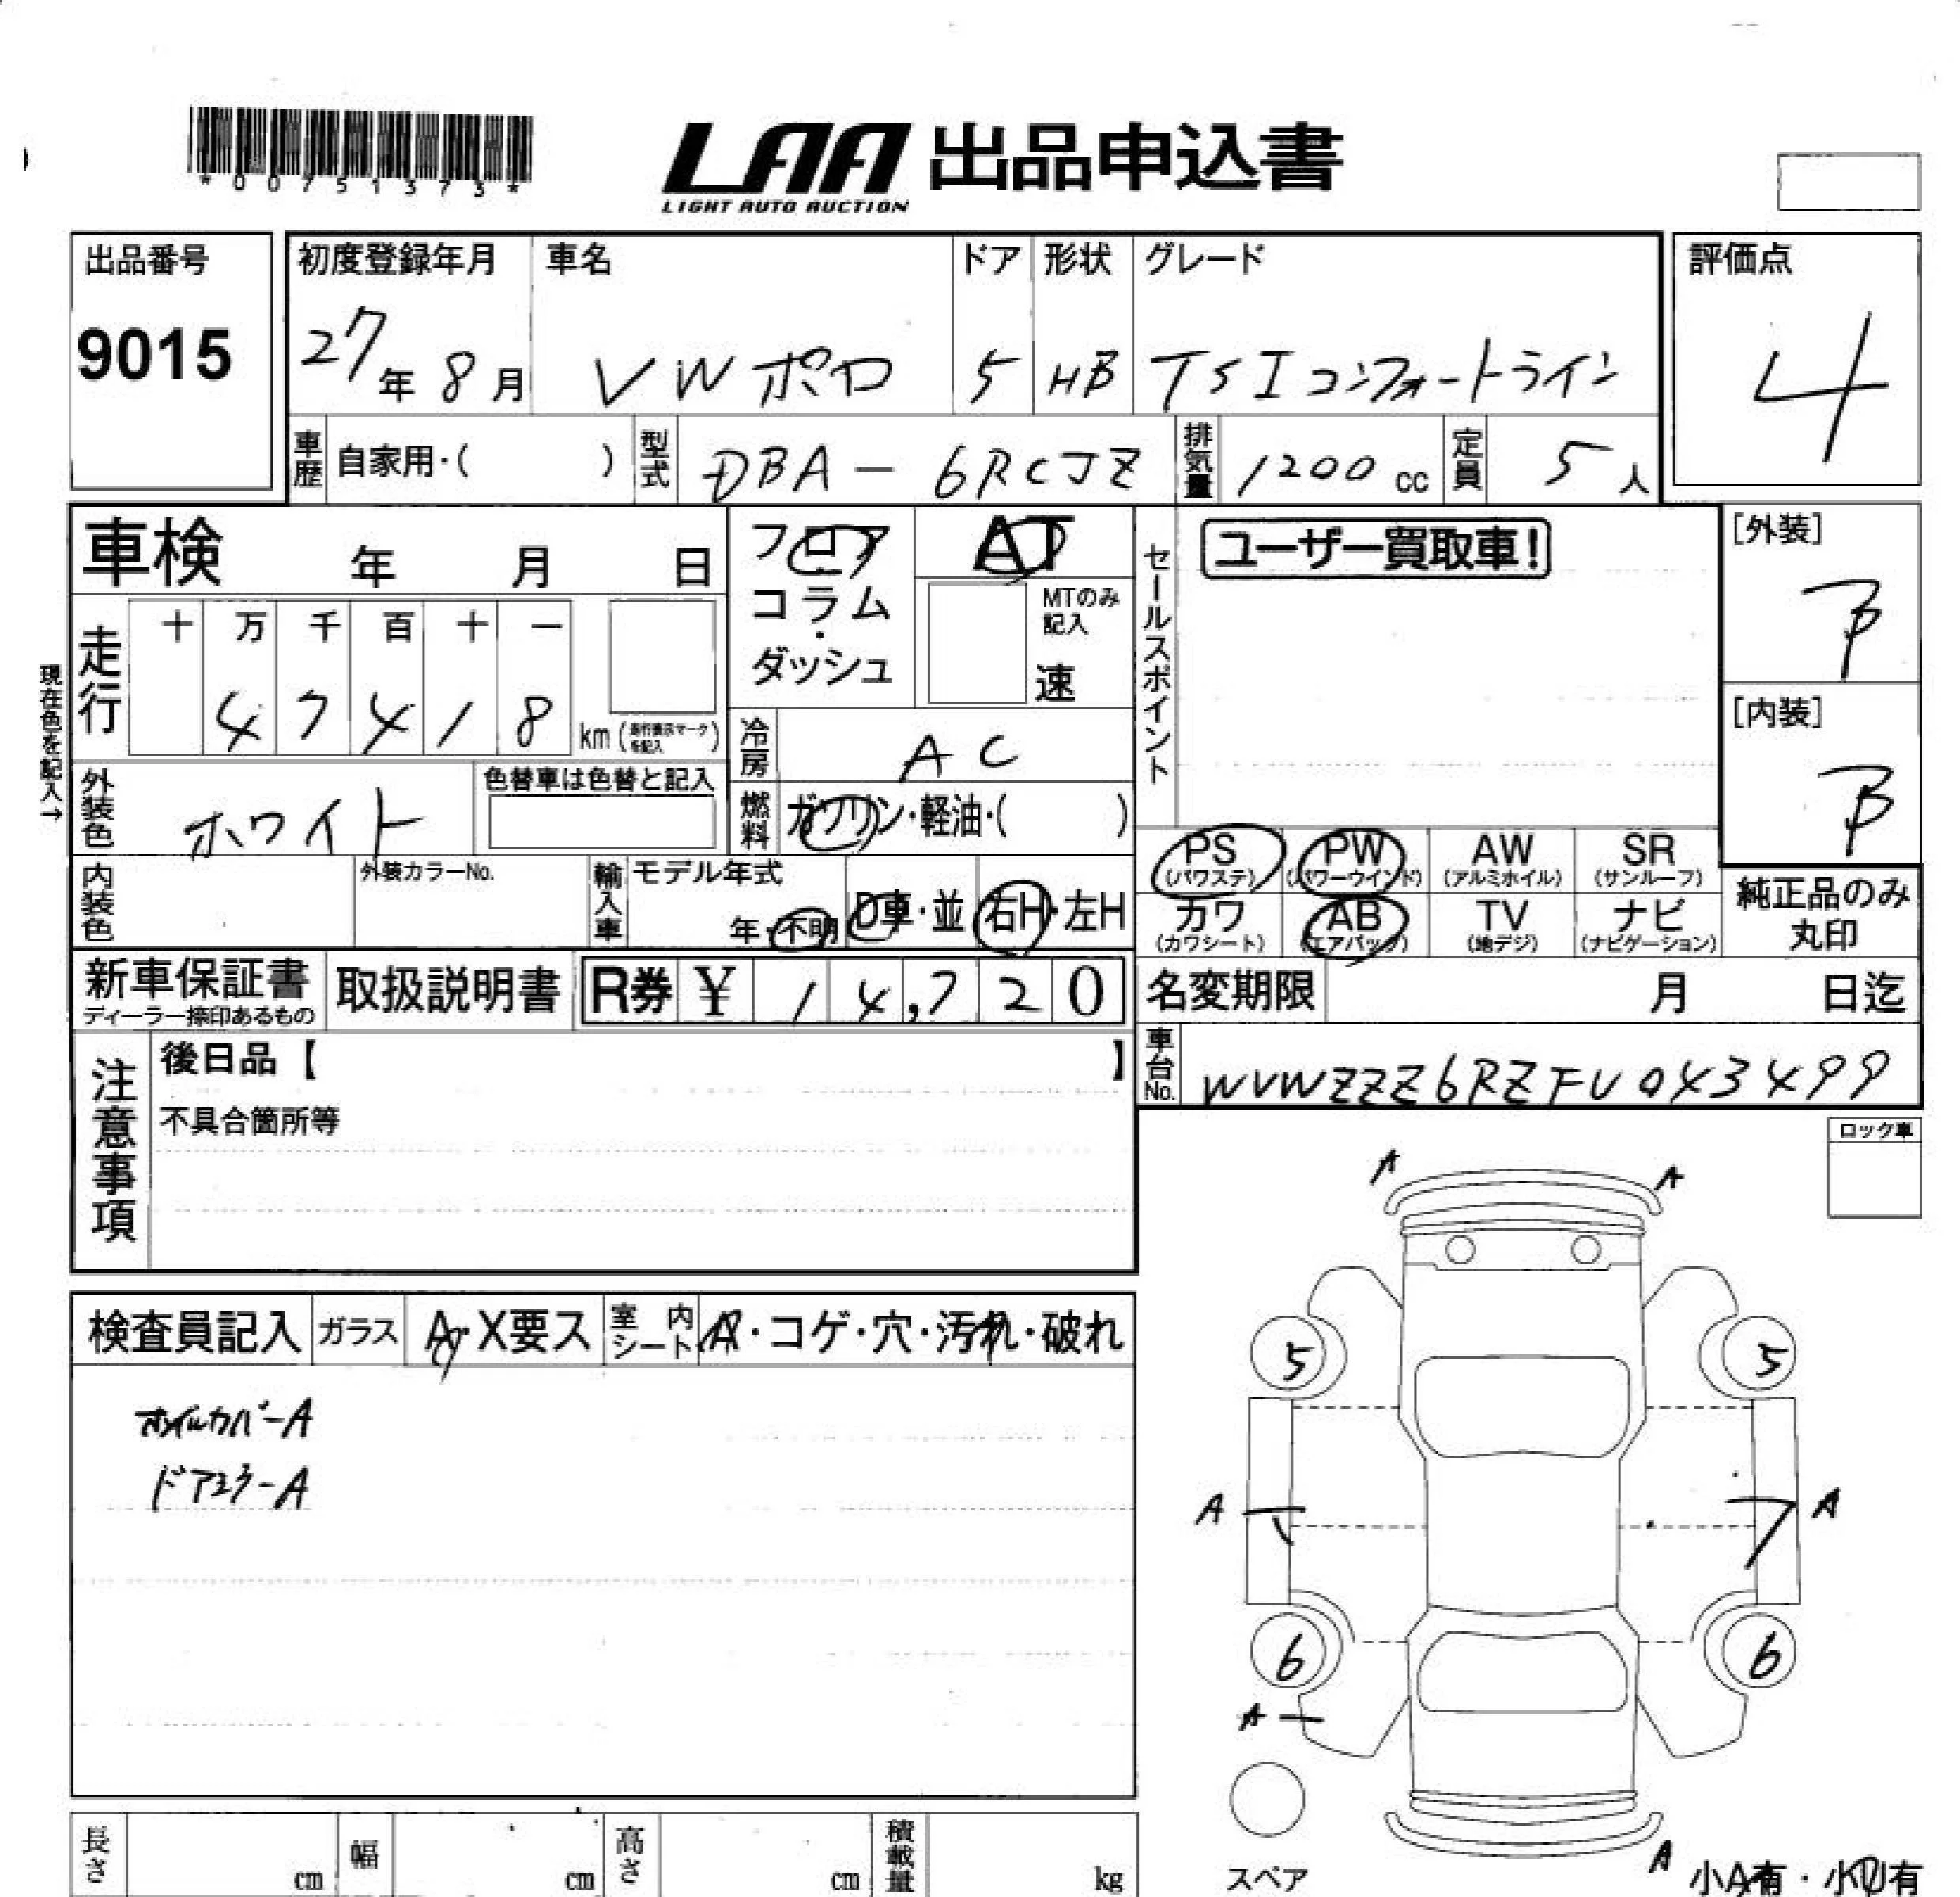 *00751373*
LAA 出品申込書
LIGHT AUTO AUCTION
出品番号
9015
初度登録年月
27年 8月
車名
VWポロ
ドア
5
形状
HB
グレード
TSIコンフォートライン
評価点
4
車歴 自家用・( )
型式 DBA-6RCJZ
排気量 1200 cc
定員 5 人
車検 年 月 日
フロア
コラム
・
ダッシュ
AT
MTのみ
記入
速
セールスポイント
ユーザー買取車!
[外装]
B
[内装]
B
現在色を記入→
走行
十 万 千 百 十 一
4 7 4 1 8 km (走行表示マークを記入)
冷房 AC
外装色 ホワイト
色替車は色替と記入
燃料 ガソリン・軽油・( )
内装色
外装カラーNo.
輸入車
モデル年式
年・不明
D車・並 右H・左H
PS
(パワステ)
PW
(パワーウインド)
AW
(アルミホイル)
SR
(サンルーフ)
カワ
(カワシート)
AB
(エアバッグ)
TV
(地デジ)
ナビ
(ナビゲーション)
純正品のみ
丸印
新車保証書
ディーラー捺印あるもの
取扱説明書
R券 ¥ 14,720
名変期限 月 日迄
車台No. WVWZZZ6RZFU043499
注意事項
後日品【 】
不具合箇所等
ロック車
検査員記入
ガラス A・X要ス
室内シート A・コゲ・穴・汚れ・破れ
ホイルカバーA
ドアミラーA
A A
5 5
A A
6 6
A
A
スペア
小A有・小U有
長さ cm
幅 cm
高さ cm
積載量 kg